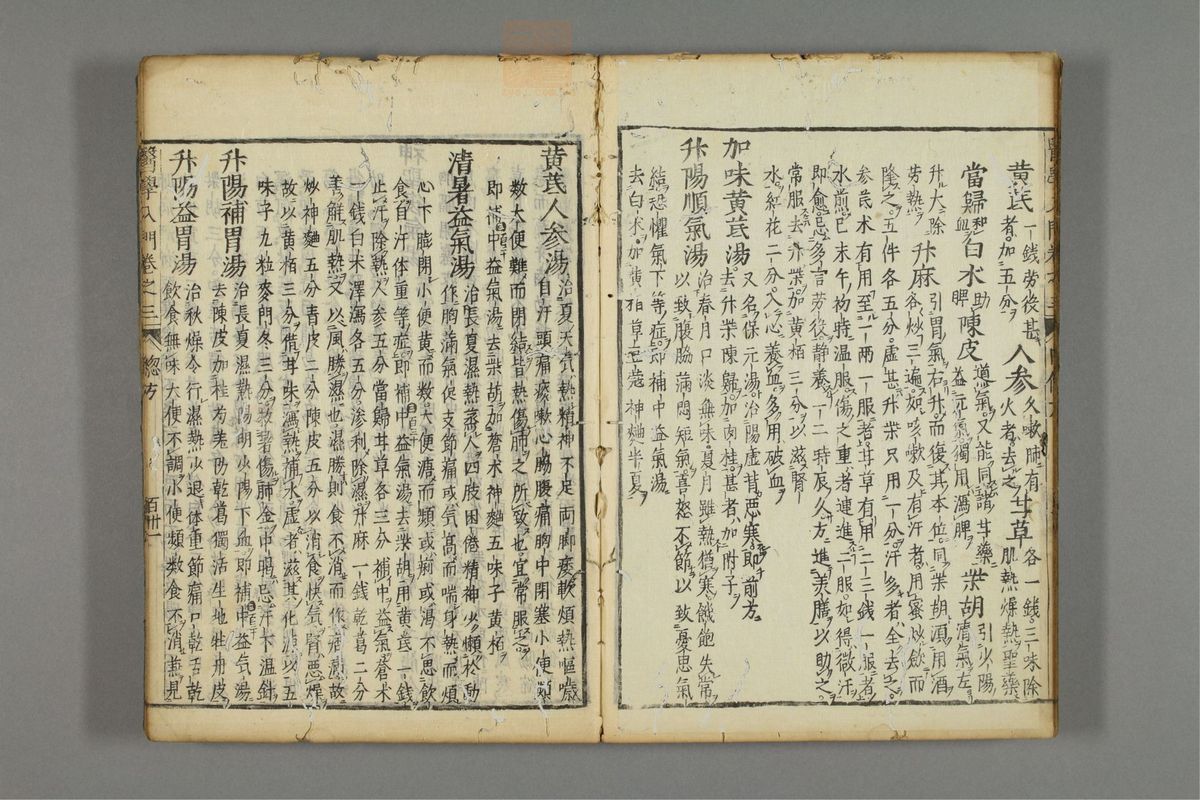 黄芪一錢勞役甚者加五分人参久嗽肺有火者去之甘草各一錢三味除肌熱燥熱聖藥
當歸和血白朮助脾陳皮導氣又能同諸甘藥益元氣獨用瀉脾柴胡引少陽清氣左
升大除勞熱升麻引胃氣右升而復其本位同柴胡須用酒各炒三遍如咳嗽及有汗者用蜜炒飲而
隆之五件各五分虛甚升柴只用二一分汗多者全去之
参芪朮有用至一兩一服者甘草有用二三錢一服者
水煎巳末午初時温服傷之重者連進二服如得微汗
即愈忌多言勞役静養一二時辰久方進美膳以助之
常服去升柴加黄栢三分以滋腎
水紅花二分入心養血多用破血
加味黄芪湯又名保元湯治陽虛甚悪寒即前方去升柴陳歸加肉桂甚者加附子
升陽順氣湯治春月口淡無味夏月雖熱猶寒餓飽失常以致腹脇滿悶短氣喜怒不節以致憂思氣
結恐懼氣下等症即補中益氣湯
去白朮加黄栢草豆蔲神麯半夏
黄芪人参湯治夏天氣熱精神不足兩脚痿軟煩熱嘔噦自汗頭痛痰嗽心腸腹痛胸中閉塞小便頻
數大便難而閉結皆熱傷肺之所致也宜常服之
即補中益氣湯去柴胡加蒼朮神麯五味子黄栢
清暑益氣湯治長夏濕熱蒸人四肢困倦精神少懶於動作胸滿氣促支節痛或氣高而喘身熱而煩
心下膨閉小便黄而數大便溏而頻或痢或瀉不思飲
食自汗体重等症即補中益氣湯去柴胡用黄芪一錢
止汗除熱人参五分當歸甘草各三分補中益氣蒼朮
一錢白朮澤瀉各五分滲利除濕升麻一錢乾葛二分
善解肌熱又以風勝濕也濕勝則食不消而作痞滿故
炒神麯五分青皮二分陳皮五分以消食快氣腎悪燥
故以黄栢三分借甘味瀉熱補水虛者滋其化源以五
味子九粒麥門冬三分救暑傷肺金中暍忌汗下温針
升陽補胃湯治長夏濕熱陽明少陽下血即補中益氣湯去陳皮加桂芍羌防乾葛獨活生地牡丹皮
升陽益胃湯治秋燥令行濕熱少退体重節痛口乾舌乾飲食無味大便不調小便頻數食不消兼見
醫學入門卷之三
總方
百卅一